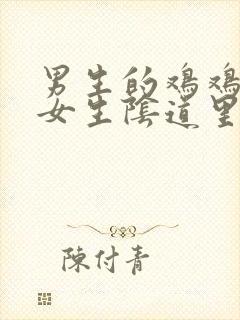 男生的鸡鸡
女生陰道里
陳付青